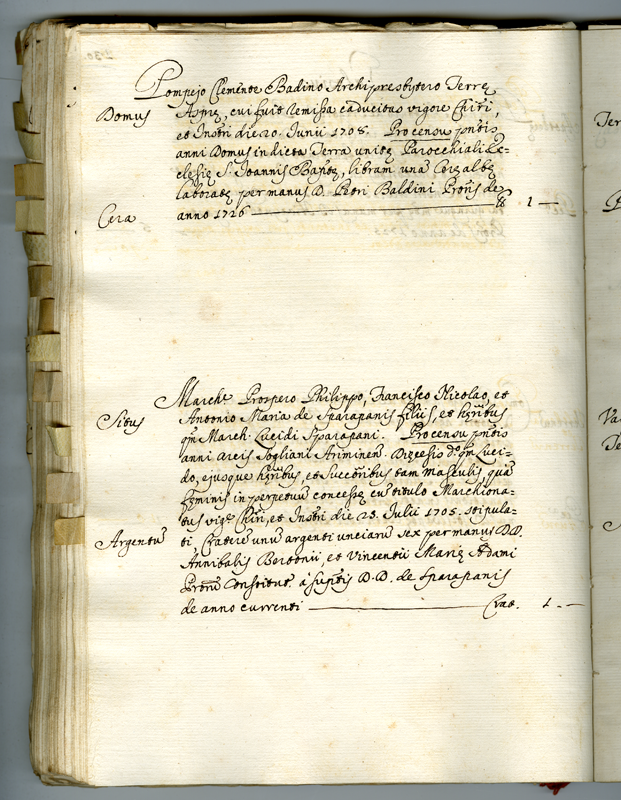 Pompejo Clemente Badino Archipresbytero Terrę
Domus
Aspre, cui fuit remissa caducitas vigore Chiri,
et Instri die 20. Junii 1708. Pro censu pntis
anni Domus in dicta Terra unitę Parochiali Ec-
clesię S. Joannis Baptę, libram unā Cerę albę
laboratę per manus D. Petri Baldini Proris de
Cera
anno 1726 — lb 1 —
March: Prospero Philippo, Francisco Nicolao, et
Situs
Antonio Maria de Sparapanis filiis, et hęribus
qm March. Lucidi Sparapani. Pro censu pntis
anni Arcis Sogliani Ariminen. Dięcesis do. qm Luci-
do, ejusque hęribus, et Succribus tam masculis quā
fęminis in perpetuū concessę cū titulo Marchiona-
tus vige. Chiri, et Instri die 23. Julii 1705. stipula-
Argentū
ti, Craterē unū argenti unciarū sex per manus DD.
Annibalis Bertonii, et Vincentii Marię Adani
Prorū Constitut. à suptis D.D. de Sparapanis
de anno currenti — Crat. 1. —